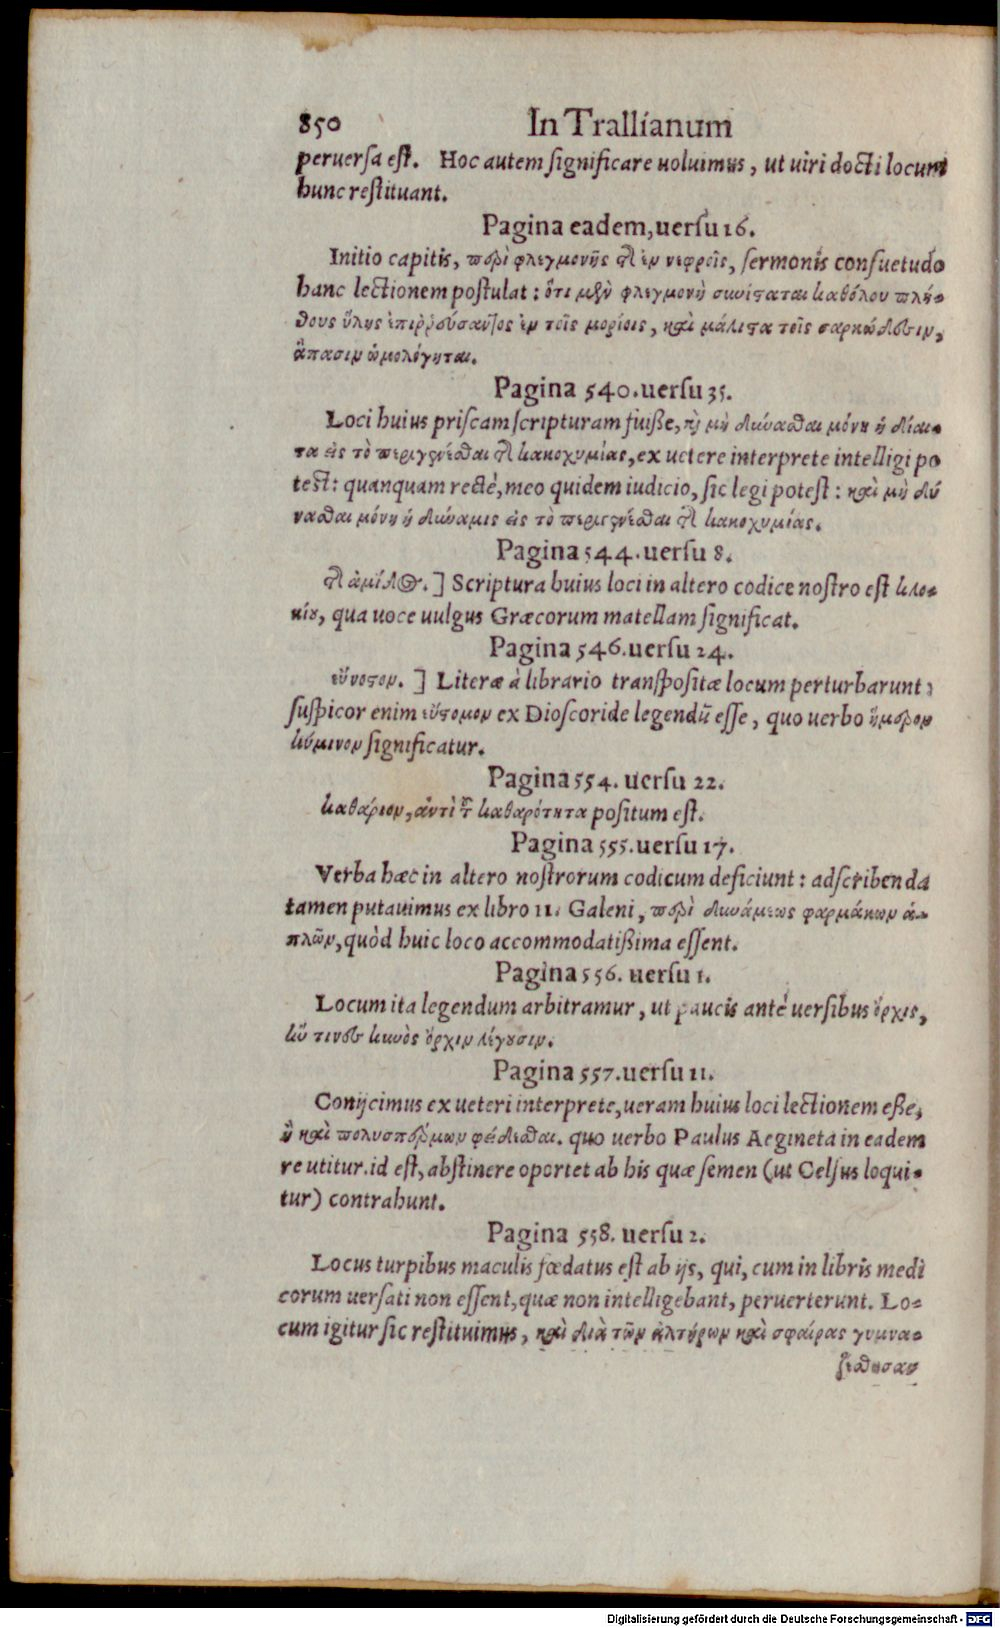 850 In Trallianum
peruersa est. Hoc autem significare uoluimus, ut uiri docti locum
hunc restituant.
Pagina eadem, uersu 16.
Initio capitis, περὶ φλεγμονῆς τῆς ἐν νεφροῖς, sermonis consuetudo
hanc lectionem postulat: ὅτι μὲν φλεγμονὴ συνίσταται καθόλου πλή-
θους ὕλης ἐπιῤῥεύσαντος ἐν τοῖς μορίοις, καὶ μάλιστα τοῖς σαρκώδεσιν,
ἅπασιν ὡμολόγηται.
Pagina 540. uersu 35.
Loci huius priscam scripturam fuiße, καὶ μὴ δύνασθαι μόνη ἡ δίαι-
τα εἰς τὸ περιγενέσθαι τῆς κακοχυμίας, ex uetere interprete intelligi po
test: quanquam rectè, meo quidem iudicio, sic legi potest: καὶ μὴ δύ
νασθαι μόνη ἡ δύναμις εἰς τὸ περιγενέσθαι τῆς κακοχυμίας.
Pagina 544. uersu 8.
τῆς ἀμίδος.] Scriptura huius loci in altero codice nostro est κλο-
κίου, qua uoce uulgus Græcorum matellam significat.
Pagina 546. uersu 24.
εὔνοστον.] Literæ à librario transpositæ locum perturbarunt:
suspicor enim εὔστομον ex Dioscoride legendū esse, quo uerbo ἥμερον
κύμινον significatur.
Pagina 554. uersu 22.
καθάριον, ἀντὶ τοῦ καθαρότητα positum est.
Pagina 555. uersu 17.
Verba hæc in altero nostrorum codicum deficiunt: adscribenda
tamen putauimus ex libro 11. Galeni, περὶ δυνάμεως φαρμάκων ἁ-
πλῶν, quòd huic loco accommodatißima essent.
Pagina 556. uersu 1.
Locum ita legendum arbitramur, ut paucis antè uersibus ὄρχις,
ἥν τινες κυνὸς ὄρχιν λέγουσιν.
Pagina 557. uersu 11.
Conijcimus ex ueteri interprete, ueram huius loci lectionem eße,
ἢ καὶ πολυσπέρμων φείδεσθαι. quo uerbo Paulus Aegineta in eadem
re utitur. id est, abstinere oportet ab his quæ semen (ut Celsus loqui-
tur) contrahunt.
Pagina 558. uersu 2.
Locus turpibus maculis fœdatus est ab ijs, qui, cum in libris medi
corum uersati non essent, quæ non intelligebant, peruerterunt. Lo-
cum igitur sic restituimus, καὶ διὰ τῶν ἁλτήρων καὶ σφαίρας γυμνα-
Digitalisierung gefördert durch die Deutsche Forschungsgemeinschaft - DFG